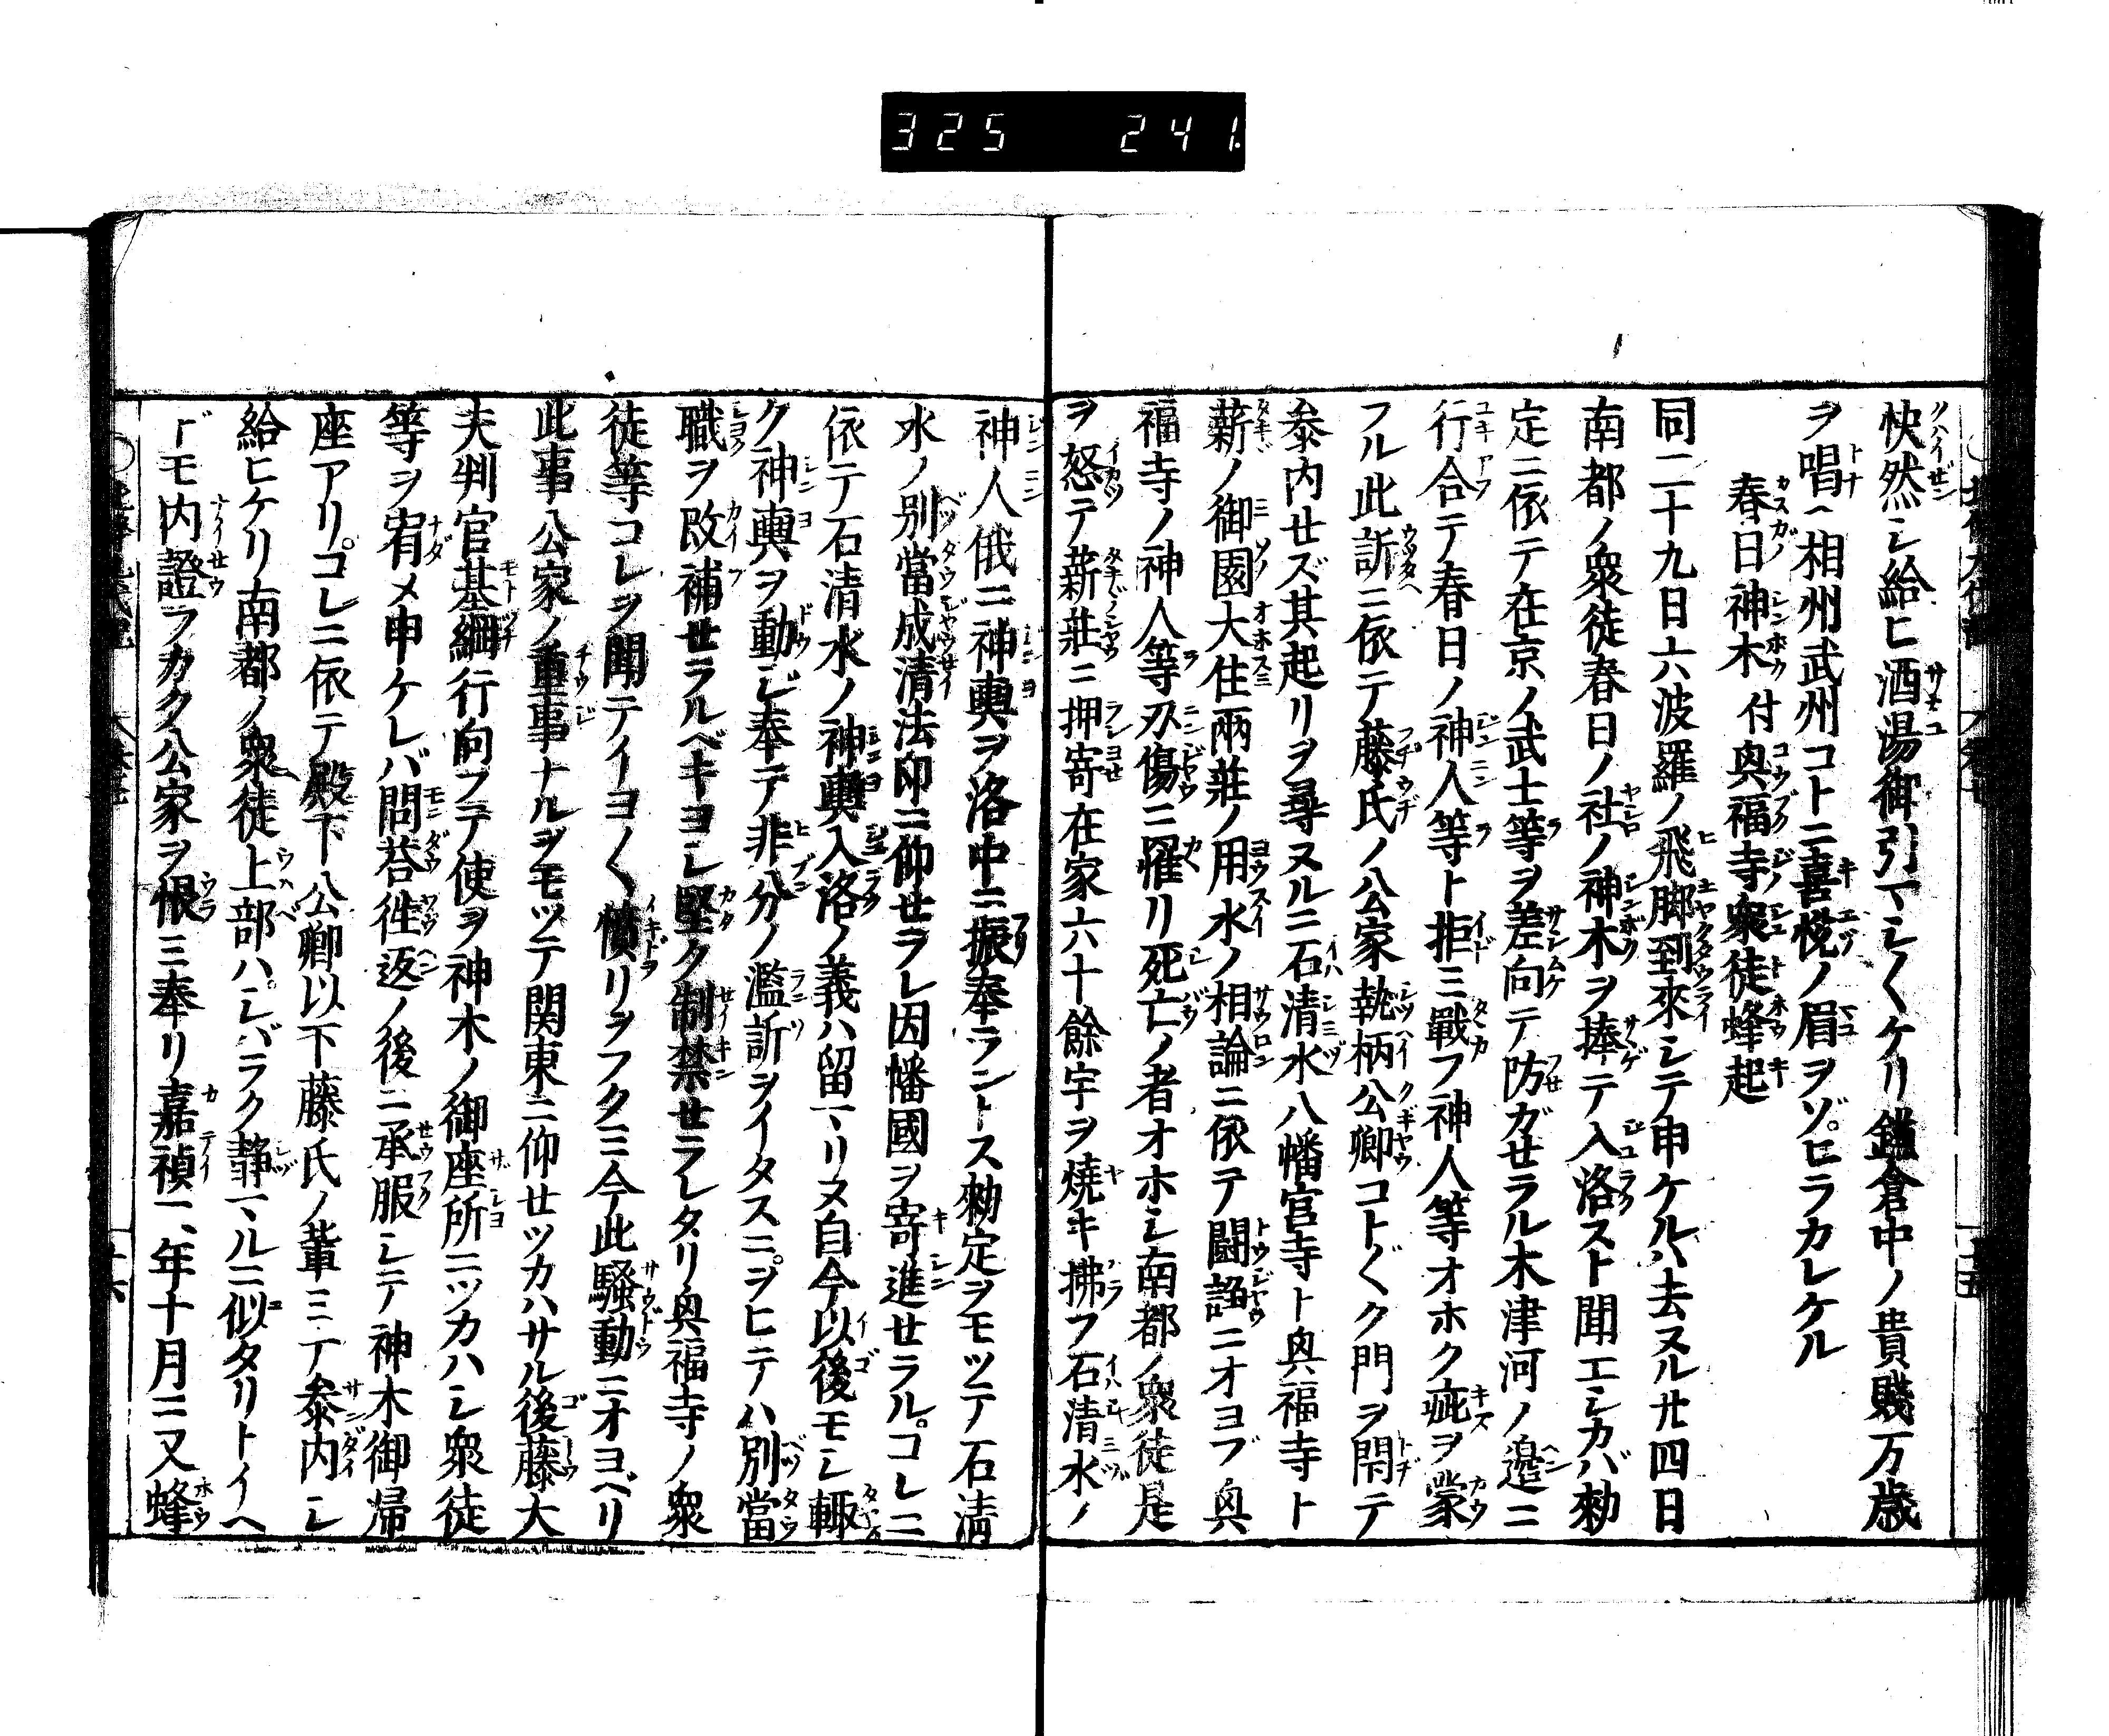 325 241
快然シ給ヒ酒湯御引マシ〱ケリ鎌倉中ノ貴賤万歳
ヲ唱ヘ相州武州コトニ喜悦ノ眉ヲゾヒラカレケル
春日神木付興福寺衆徒蜂起
同二十九日六波羅ノ飛脚到來シテ申ケルハ去ヌル廿四日
南都ノ衆徒春日ノ社ノ神木ヲ捧テ入洛スト聞エシカバ勅
定ニ依テ在京ノ武士等ヲ差向テ防ガせラル木津河ノ邉ニ
行合テ春日ノ神人等ト拒ミ戰フ神人等オホク疵ヲ蒙
フル此訴ニ依テ藤氏ノ公家執柄公卿コト〲ク門ヲ閇テ
参内せズ其起リヲ尋ヌルニ石清水八幡宮寺ト興福寺ト
薪ノ御園大住兩莊ノ用水ノ相論ニ依テ鬪諍ニオヨブ興
福寺ノ神人等刃傷ニ罹リ死亡ノ者オホシ南都ノ衆徒是
ヲ怒テ薪莊ニ押寄在家六十餘宇ヲ燒キ拂フ石清水ノ
神人俄ニ神輿ヲ洛中ニ振奉ラントス勅定ヲモツテ石清
水ノ別當成清法印ニ仰せラレ因幡國ヲ寄進せラルコレニ
依テ石清水ノ神輿入洛ノ義ハ留マリヌ自今以後モシ輙
ク神輿ヲ動ジ奉テ非分ノ濫訴ヲイタスニヲヒテハ別當
職ヲ改補せラルベキヨシ堅ク制禁せラレタリ興福寺ノ衆
徒等コレヲ聞テイヨ〱憤リヲフクミ今此騷動ニオヨベリ
此事公家ノ重事ナルヲモツテ関東ニ仰せツカハサル後藤大
夫判官基綱行向フテ使ヲ神木ノ御座所ニツカハシ衆徒
等ヲ宥メ申ケレバ問荅徃返ノ後ニ承服シテ神木御帰
座アリコレニ依テ殿下公卿以下藤氏ノ輩ミナ参内シ
給ヒケリ南都ノ衆徒上部ハシバラク靜マルニ似タリトイヘ
ドモ内證フカク公家ヲ恨ミ奉リ嘉禎二年十月ニ又蜂